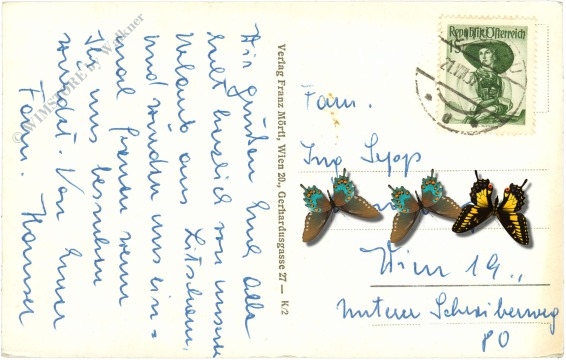 Wir grüßen Euch alle
recht herzlich von unserem
Urlaub aus
und würden uns ein-
mal freuen wenn
Ihr uns besuchen
würdet. Von Eurer
Fam.
Verlag Franz Mörtl, Wien 20., Gerhardusgasse 27 — K/2
Republik Österreich
Fam.
Ing.
Wien 19.,
Unterer Schreiberweg
80
© WIMSTORE by Walkner